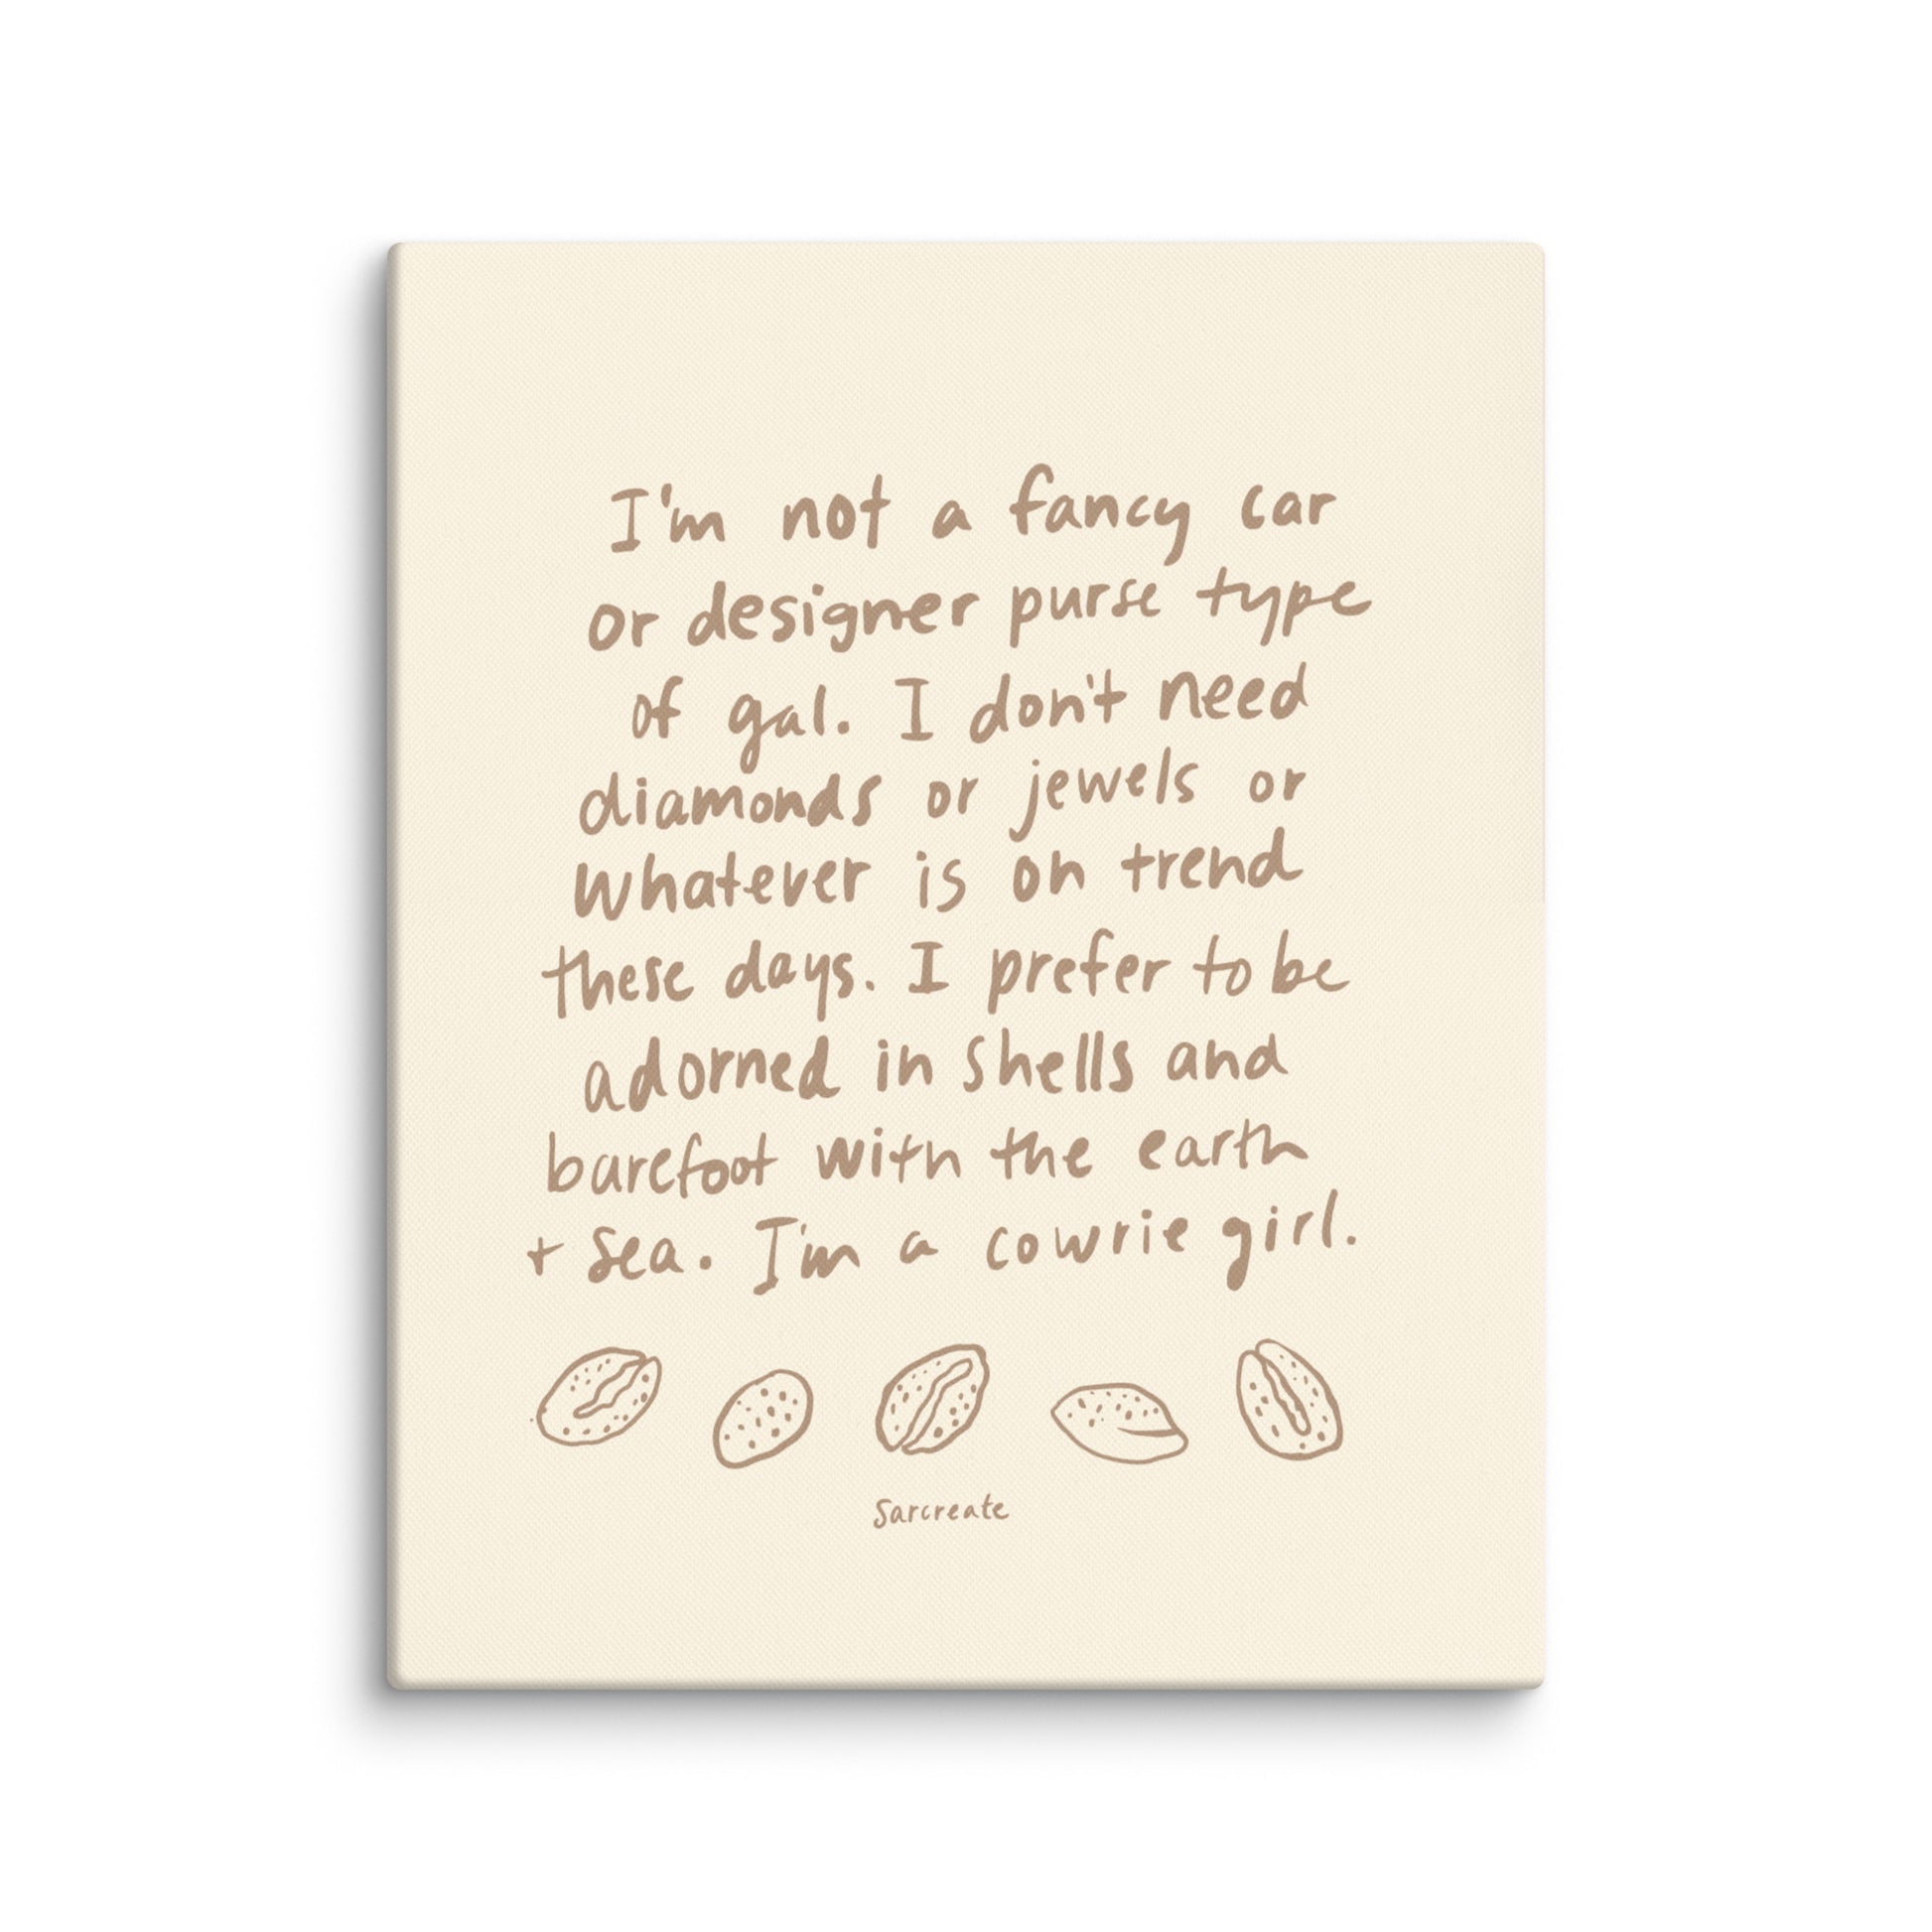 I'm not a fancy car
or designer purse type
of gal. I don't need
diamonds or jewels or
whatever is on trend
these days. I prefer to be
adorned in shells and
barefoot with the earth
+ sea. I'm a cowrie girl.
Sarcreate